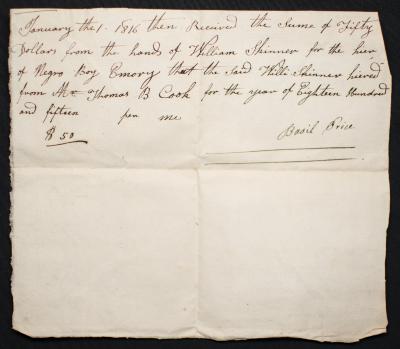 January the 1. 1816 then Received the Sume of Fifty
Dollars from the hands of William Skinner for the hier
of Negro Boy Emory that the Said Willi Skinner hiered
from Mr Thomas B Cook for the year of Eighteen Hundred
and fifteen per me
$ 50
Basil Price